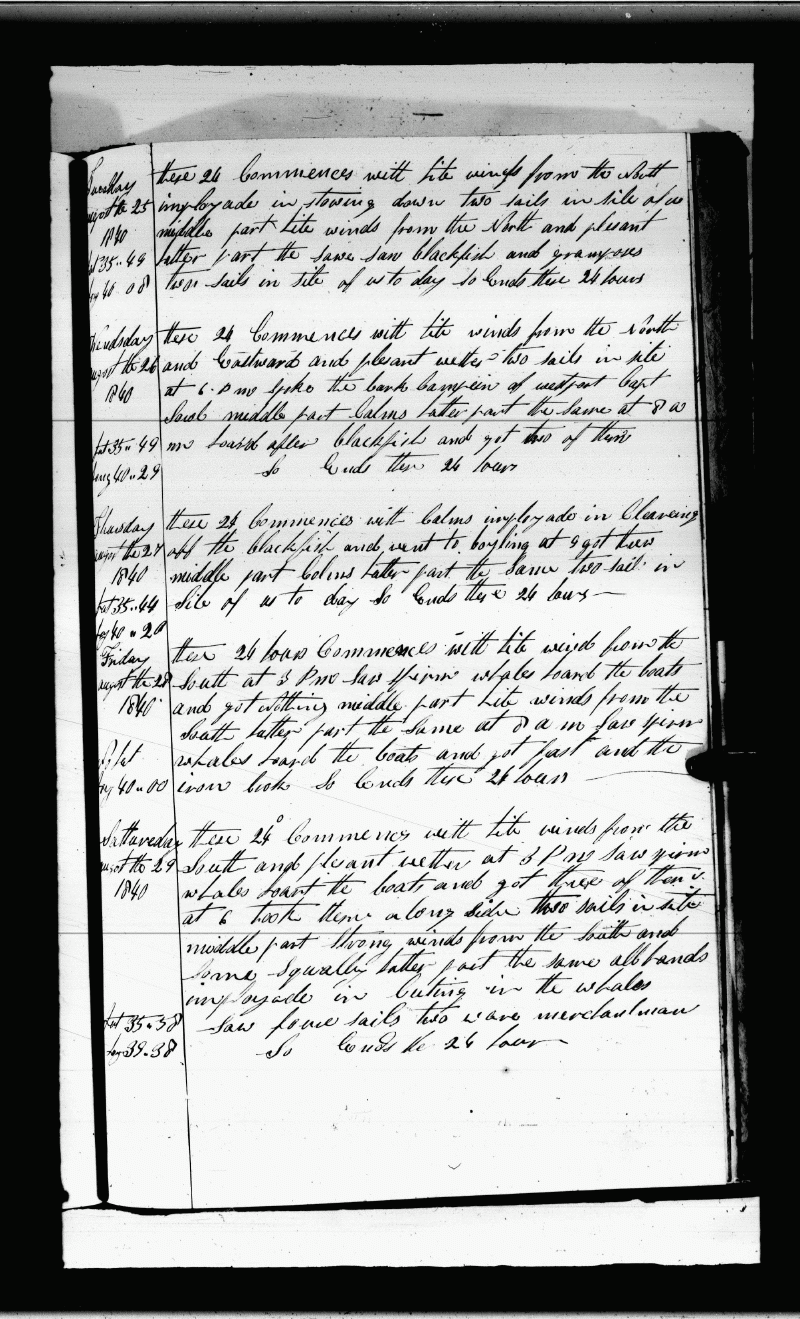 Tuesday
august the 25
1840
Lat 35..49
Long 40..08
these 24 Commences with lite winds from the North
imployade in stowing down two sails in site of us
middle part Lite winds from the North and plesant
latter part the same saw blackfish and grampuses
two sails in site of us to day So Ends these 24 hours
Wendsday
august the 26
1840
Lat 35..49
Long 40..29
these 24 Commences with lite winds from the North
and Eastward and plesant wether two sails in site
at 6 P m spke the bark of westport Capt
middle part Calms latter part the same at 8 a
m loard after blackfish and got two of them
So Ends these 24 hours
Thursday
august the 27
1840
Lat 35..44
Long 40..20
these 24 Commences with Calms imployade in Cleareing
off the blackfish and went to boyling at 9 got threw
middle part Calms latter part the Same two sail in
Site of us to day So Ends these 24 hours
Friday
august the 28
1840
Lat
Long 40..00
these 24 hours Commences with lite wind from the
South at 3 P m saw spirm whales loard the boats
and got nothing middle part Lite winds from the
South latter part the Same at 8 a m Saw spirm
whales loard the boats and got fast and the
iron brok So Ends these 24 hours
Satturday
august the 29
1840
Lat 35..38
Long 39..38
these 24 Commences with lite winds from the
South and plesant wether at 3 P m saw spirm
whales loard the boats and got three of them
at 6 took them along side two sails in site
middle part Strong winds from the South and
Some Squally latter part the same all hands
imployade in Cuting in the whales
Saw foure sails two ware merchantman
So Ends the 24 hours